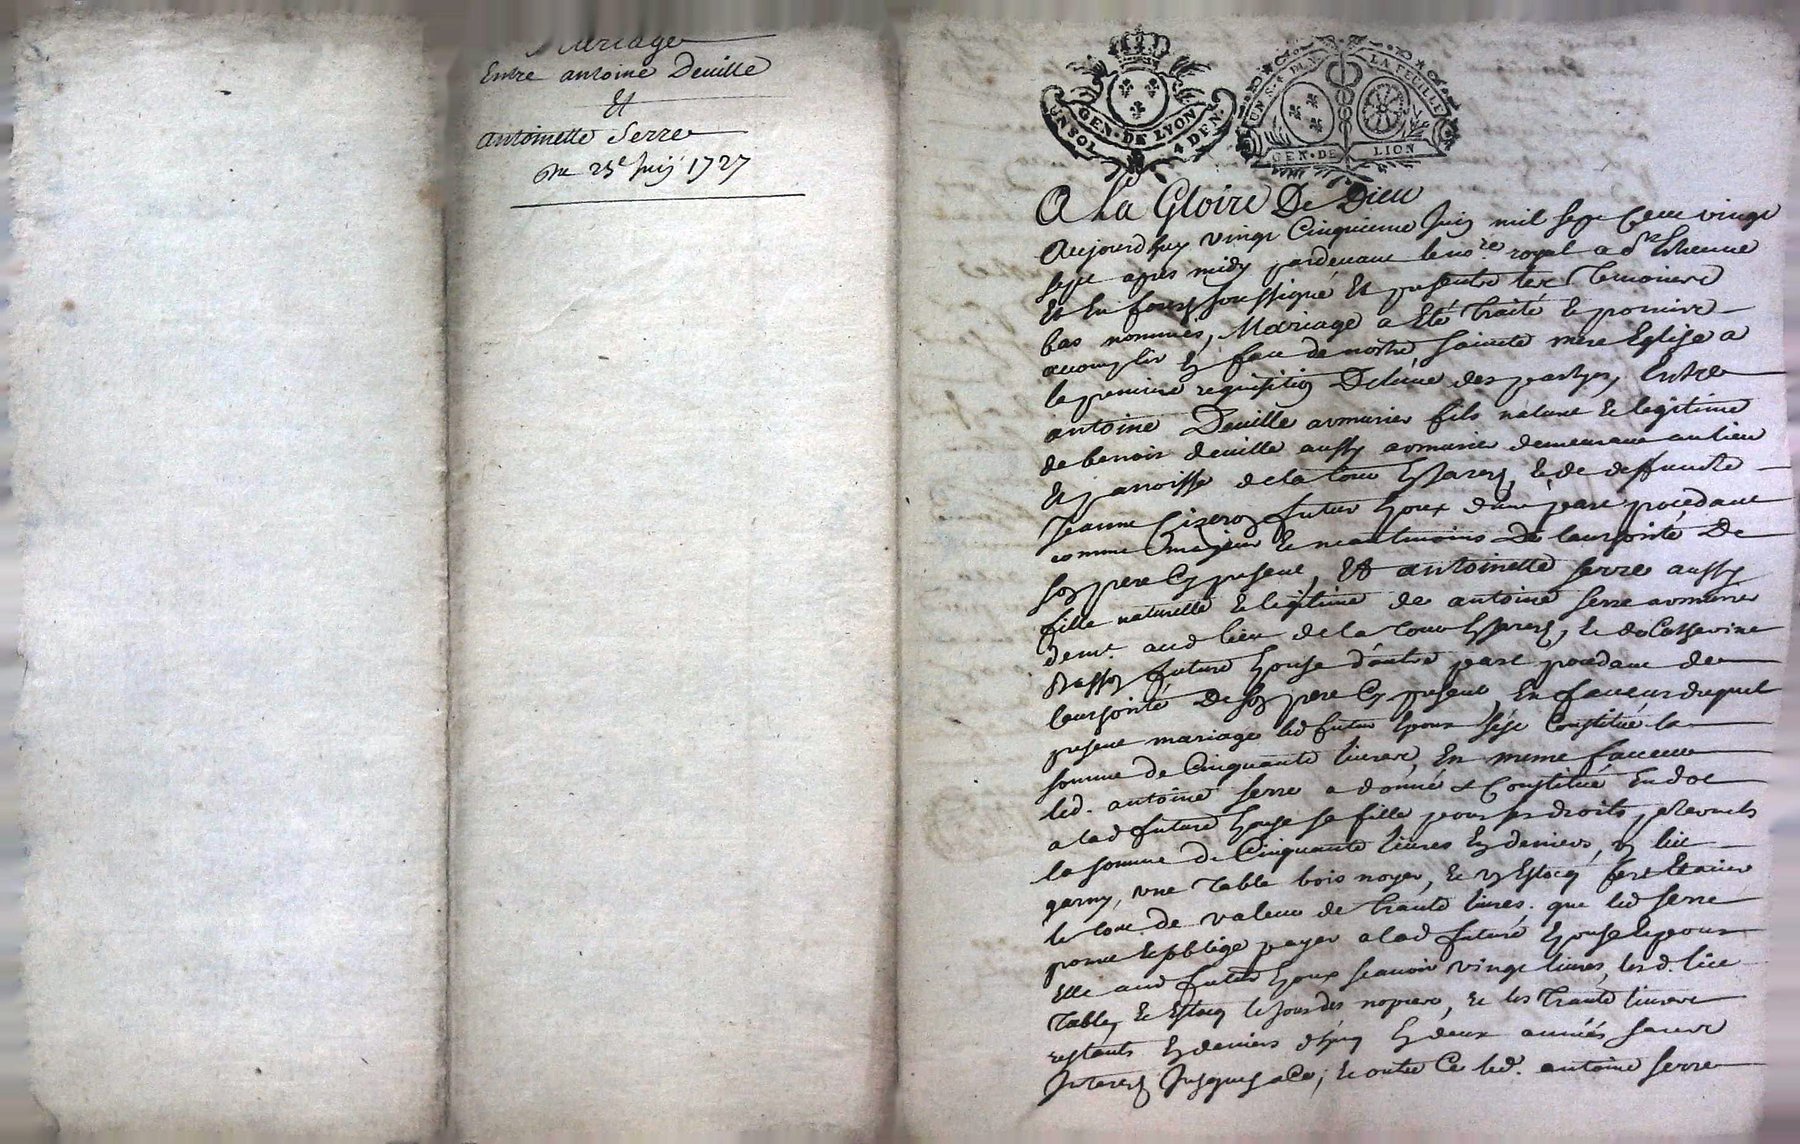 Mariage
Entre antoine Deville
Et
antoinette Serre
Du 25e juin 1727
UN SOL 4 DEN.
GEN. DE LYON
UN S. 4 DEN. LA FEUILLE
GEN. DE LION
A La Gloire De Dieu
Aujourdhuy vingt Cinquieme Juin mil sept Cent vingt
sept apres midy pardevant le no.re royal a St Estienne
Et en forest soussigné Et presentes les Temoins
bas nommés, Mariage a Eté traité Et promis
acomplir En face de nostre sainte mere Eglise a
la premiere requisition De lune des partyes, Entre
antoine Deville armurier fils naturel Et legitime
de benoit deville aussy armurier demeurant au lieu
Et parroisse de la Tour En Jarest, Et de deffuncte
Jeanne futur Epoux dune part procedant
comme majeur Et neantmoins De lauthorité De
son pere Cy present, Et antoinette serre aussy
fille naturelle Et legitime de antoine serre armurier
demt. aud lieu de la Tour En Jarest, Et de Catherine
future Epouse d'autre part procedant de
lauthorité De son pere Cy present, En faveur duquel
present mariage led futur Epoux sest Constitué la
somme de Cinquante livres, En meme faveur
led. antoine serre a donné & Constitué En dot
a lad future Epouse sa fille pour ses droits paternels
la somme de Cinquante livres En deniers, un lit
garny, une Table bois noyer, Et un
le tout de valeur de trante livres. que led serre
promet Et oblige payer a lad future Epouse Et pour
Elle aud futur Epoux scavoir vingt livres, lesd. lit
Table, Et le jour des nopces, Et les trante livres
restants En deniers dhuy En deux années sans
Interest Jusques a Ce, Et outre Ce led. antoine serre